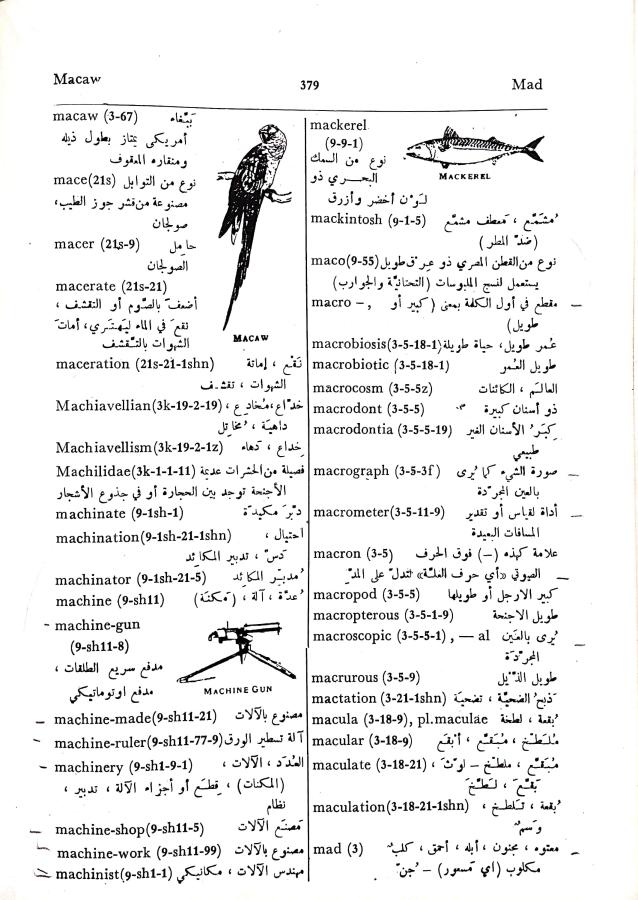 Macaw
379
Mad
macaw (3-67) بَبَّغاء
أمريكي يمتاز بطول ذيله
ومنقاره المعقوف
mace(21s) نوع من التوابل
مصنوعة من قشر جوز الطيب،
صولجان
macer (21s-9) حامل
الصولجان
macerate (21s-21)
أضعفَ بالصَّوم أو التقشف ،
نقعَ في الماء ليَهتريء، أماتَ
الشهوات بالتَّقشف
MACAW
maceration (21s-21-1shn) نَقْع ، إماتة
الشهوات ، تقشف
Machiavellian(3k-19-2-19) خدّاع، مُخادِع ،
داهية ، مُخاتِل
Machiavellism(3k-19-2-1z) خِداع ، دَهاء
Machilidae(3k-1-1-11) فصيلة من الحشرات عديمة
الأجنحة توجد بين الحجارة أو في جذوع الأشجار
machinate (9-1sh-1) دبَّر مكيدة
machination(9-1sh-21-1shn) احتيال ،
دَسّ ، تدبير المكائد
machinator (9-1sh-21-5) مُدبِّر المكائد
machine (9-sh11) عُدَّة ، آلة ، (مَكَنَة)
machine-gun
(9-sh11-8)
مدفع سريع الطلقات ،
مدفع اوتوماتيكي
MACHINE GUN
machine-made(9-sh11-21) مصنوع بالآلات
machine-ruler(9-sh11-77-9) آلة تسطير الورق
machinery (9-sh1-9-1) العُدَد ، الآلات ،
(المكنات) ، قِطَع أو أجزاء الآلة ، تدبير ،
نظام
machine-shop(9-sh11-5) مَصنَع الآلات
machine-work (9-sh11-99) مصنوع بالآلات
machinist(9-sh1-1) مهندس الآلات ، مكانيكي
mackerel
(9-9-1)
نوع من السمك
البحري ذو
لون أخضر وأزرق
MACKEREL
mackintosh (9-1-5) مُشَمَّع ، مَعطف مشمَّع
(ضدّ المطر)
maco(9-55) نوع من القطن المصري ذو عِرق طويل
يستعمل لنسج الملبوسات (التحتانيّة والجوارب)
macro – , مقطع في أول الكلمة بمعنى (كبير أو
طويل)
macrobiosis(3-5-18-1) عُمر طويل، حياة طويلة
macrobiotic (3-5-18-1) طويل العُمر
macrocosm (3-5-5z) العالَم ، الكائنات
macrodont (3-5-5) ذو أسنان كبيرة
macrodontia (3-5-5-19) كِبَرُ الأسنان الغير
طبيعي
macrograph (3-5-3f) صورة الشيء كما يُرى
بالعين المجرّدة
macrometer(3-5-11-9) أداة لقياس أو تقدير
المسافات البعيدة
macron (3-5) علامة كهذه (–) فوق الحرف
الصوتي «أي حرف العلّة» لتدلّ على المدّ
macropod (3-5-5) كبير الارجل أو طويلها
macropterous (3-5-1-9) طويل الاجنحة
macroscopic (3-5-5-1) , — al يُرى بالعَين
المجرّدة
macrurous (3-5-9) طويل الذَّيل
mactation (3-21-1shn) ذَبحُ الضحيّة ، تضحيَة
macula (3-18-9), pl.maculae بُقعة ، لطخة
macular (3-18-9) مُلَطَّخ ، مُبَقَّع ، أبْقَع
maculate (3-18-21) مُبَقَّع ، ملطَّخ – لوَّثَ ،
بَقَّعَ ، لَطَّخَ
maculation(3-18-21-1shn) بُقعة ، تَلطّخ ،
وَسم
mad (3) معتوه ، مجنون ، أبله ، أحمق ، كَلِبٌ
مكلوب (اي مَسعور) – جُنّ